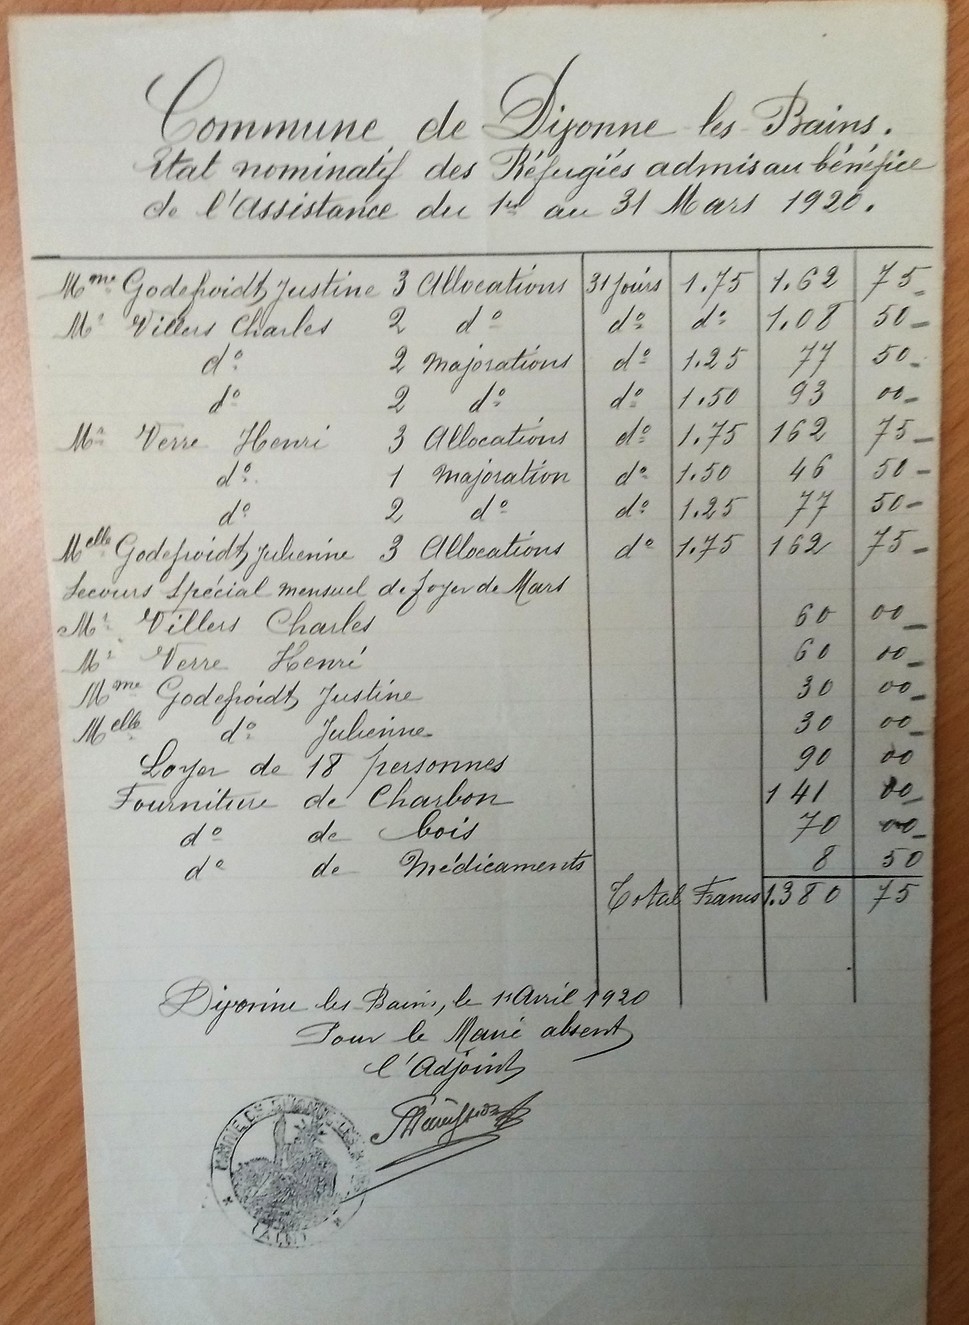 Commune de Divonne les Bains.
Etat nominatif des Réfugiés admis au bénéfice
de l'Assistance du 1er au 31 Mars 1920.
Mme Godefroidt Justine 3 Allocations 31 jours 1.75 1.62 75
Mr Villers Charles 2 do do do 1.08 50
do 2 majorations do 1.25 77 50
do 2 do do 1.50 93 00
Mr Verre Henri 3 Allocations do 1.75 162 75
do 1 majoration do 1.50 46 50
do 2 do do 1.25 77 50
Melle Godefroidt Julienne 3 Allocations do 1.75 162 75
Secours spécial mensuel de foyer de Mars
Mr Villers Charles 60 00
Mr Verre Henri 60 00
Mme Godefroidt Justine 30 00
Melle do Julienne 30 00
Loyer de 18 personnes 90 00
Fourniture de Charbon 141 00
do de bois 70 00
do de Médicaments 8 50
Total Francs 1.380 75
Divonne les Bains, le 1r Avril 1920
Pour le Maire absent
l'Adjoint
MAIRIE DE DIVONNE-LES-BAINS
(AIN)